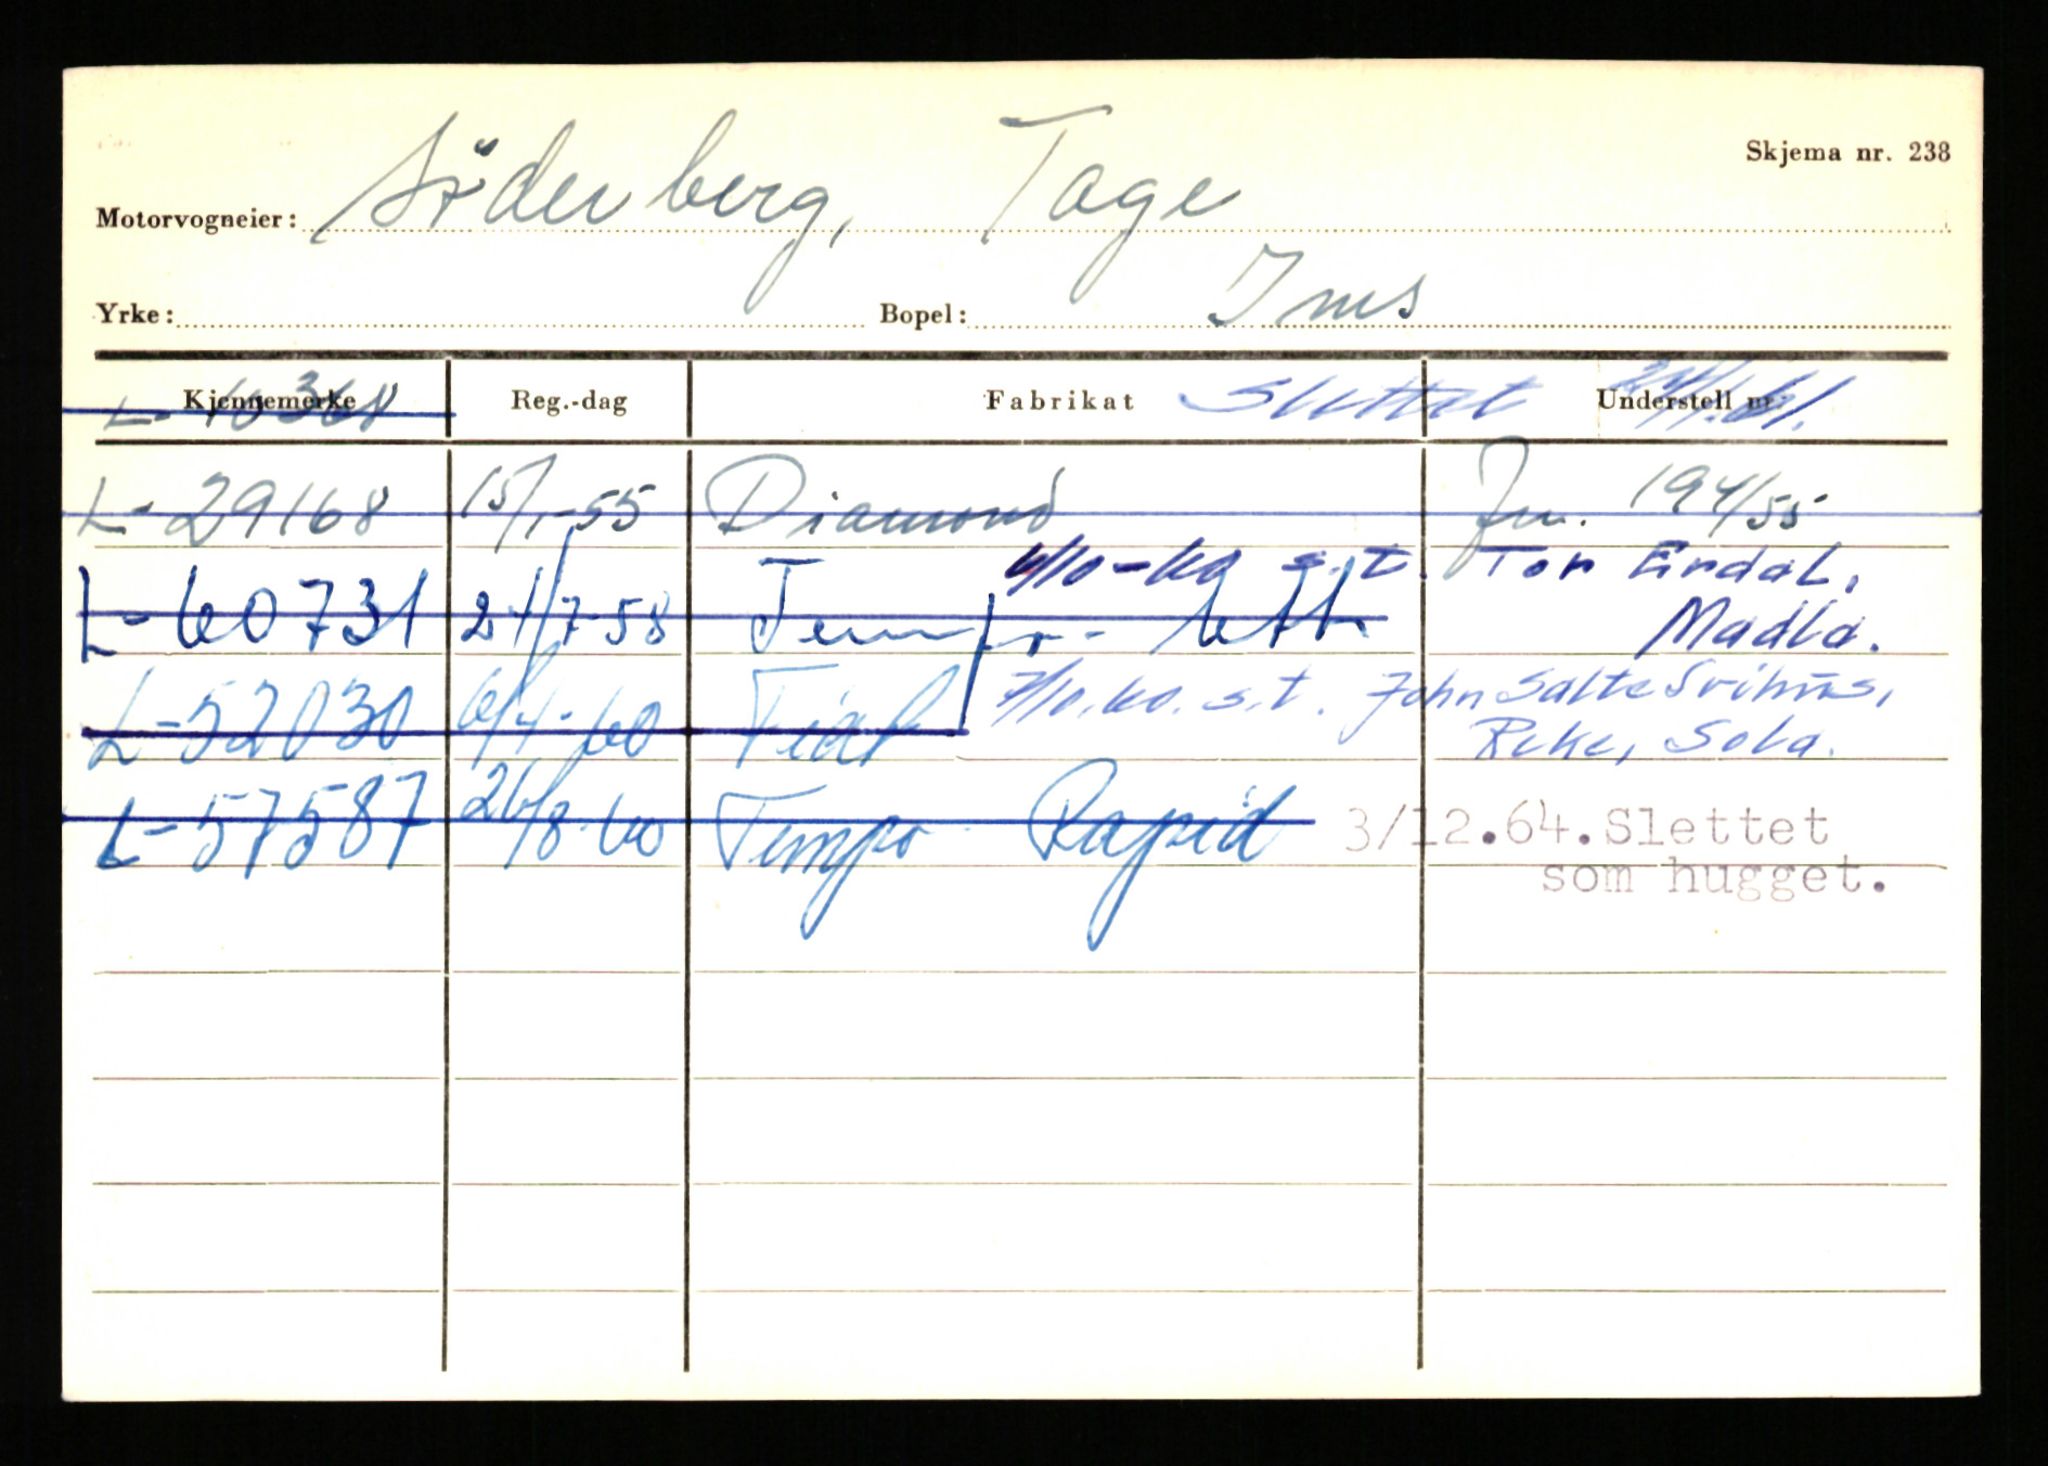 Skjema nr. 238
Motorvogneier: Söderberg, Tage
Yrke: Bopel: Ims
Kjennemerke Reg.-dag Fabrikat Understell nr.
L-10368 Slettet
L-29168 15/1-55 Diamond Jnr. 194/55
L-60731 24/7-58 Tempo- lett 6/10-60 s.t. Tor Erdal, Madla.
L-52030 6/4-60 Fiat 7/10.60. s.t. John Salte
Reke, Sola.
L-57587 26/8-60 Tempo Rapid 3/12.64. Slettet
som hugget.